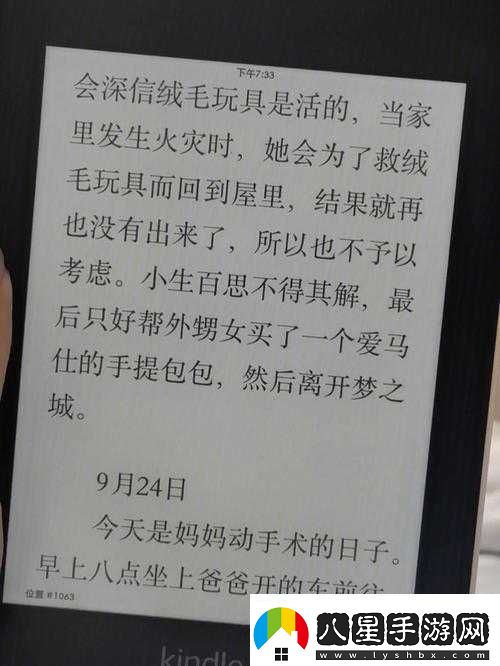 下午7:33
会深信绒毛玩具是活的，当家
里发生火灾时，她会为了救绒
毛玩具而回到屋里，结果就再
也没有出来了，所以也不予以
考虑。小生百思不得其解，最
后只好帮外甥女买了一个爱马
仕的手提包包，然后离开梦之
城。
9月24日
今天是妈妈动手术的日子。
早上八点坐上爸爸开的车前往
位置 #1063
kindle
八星手游网
www.lyshbx.com